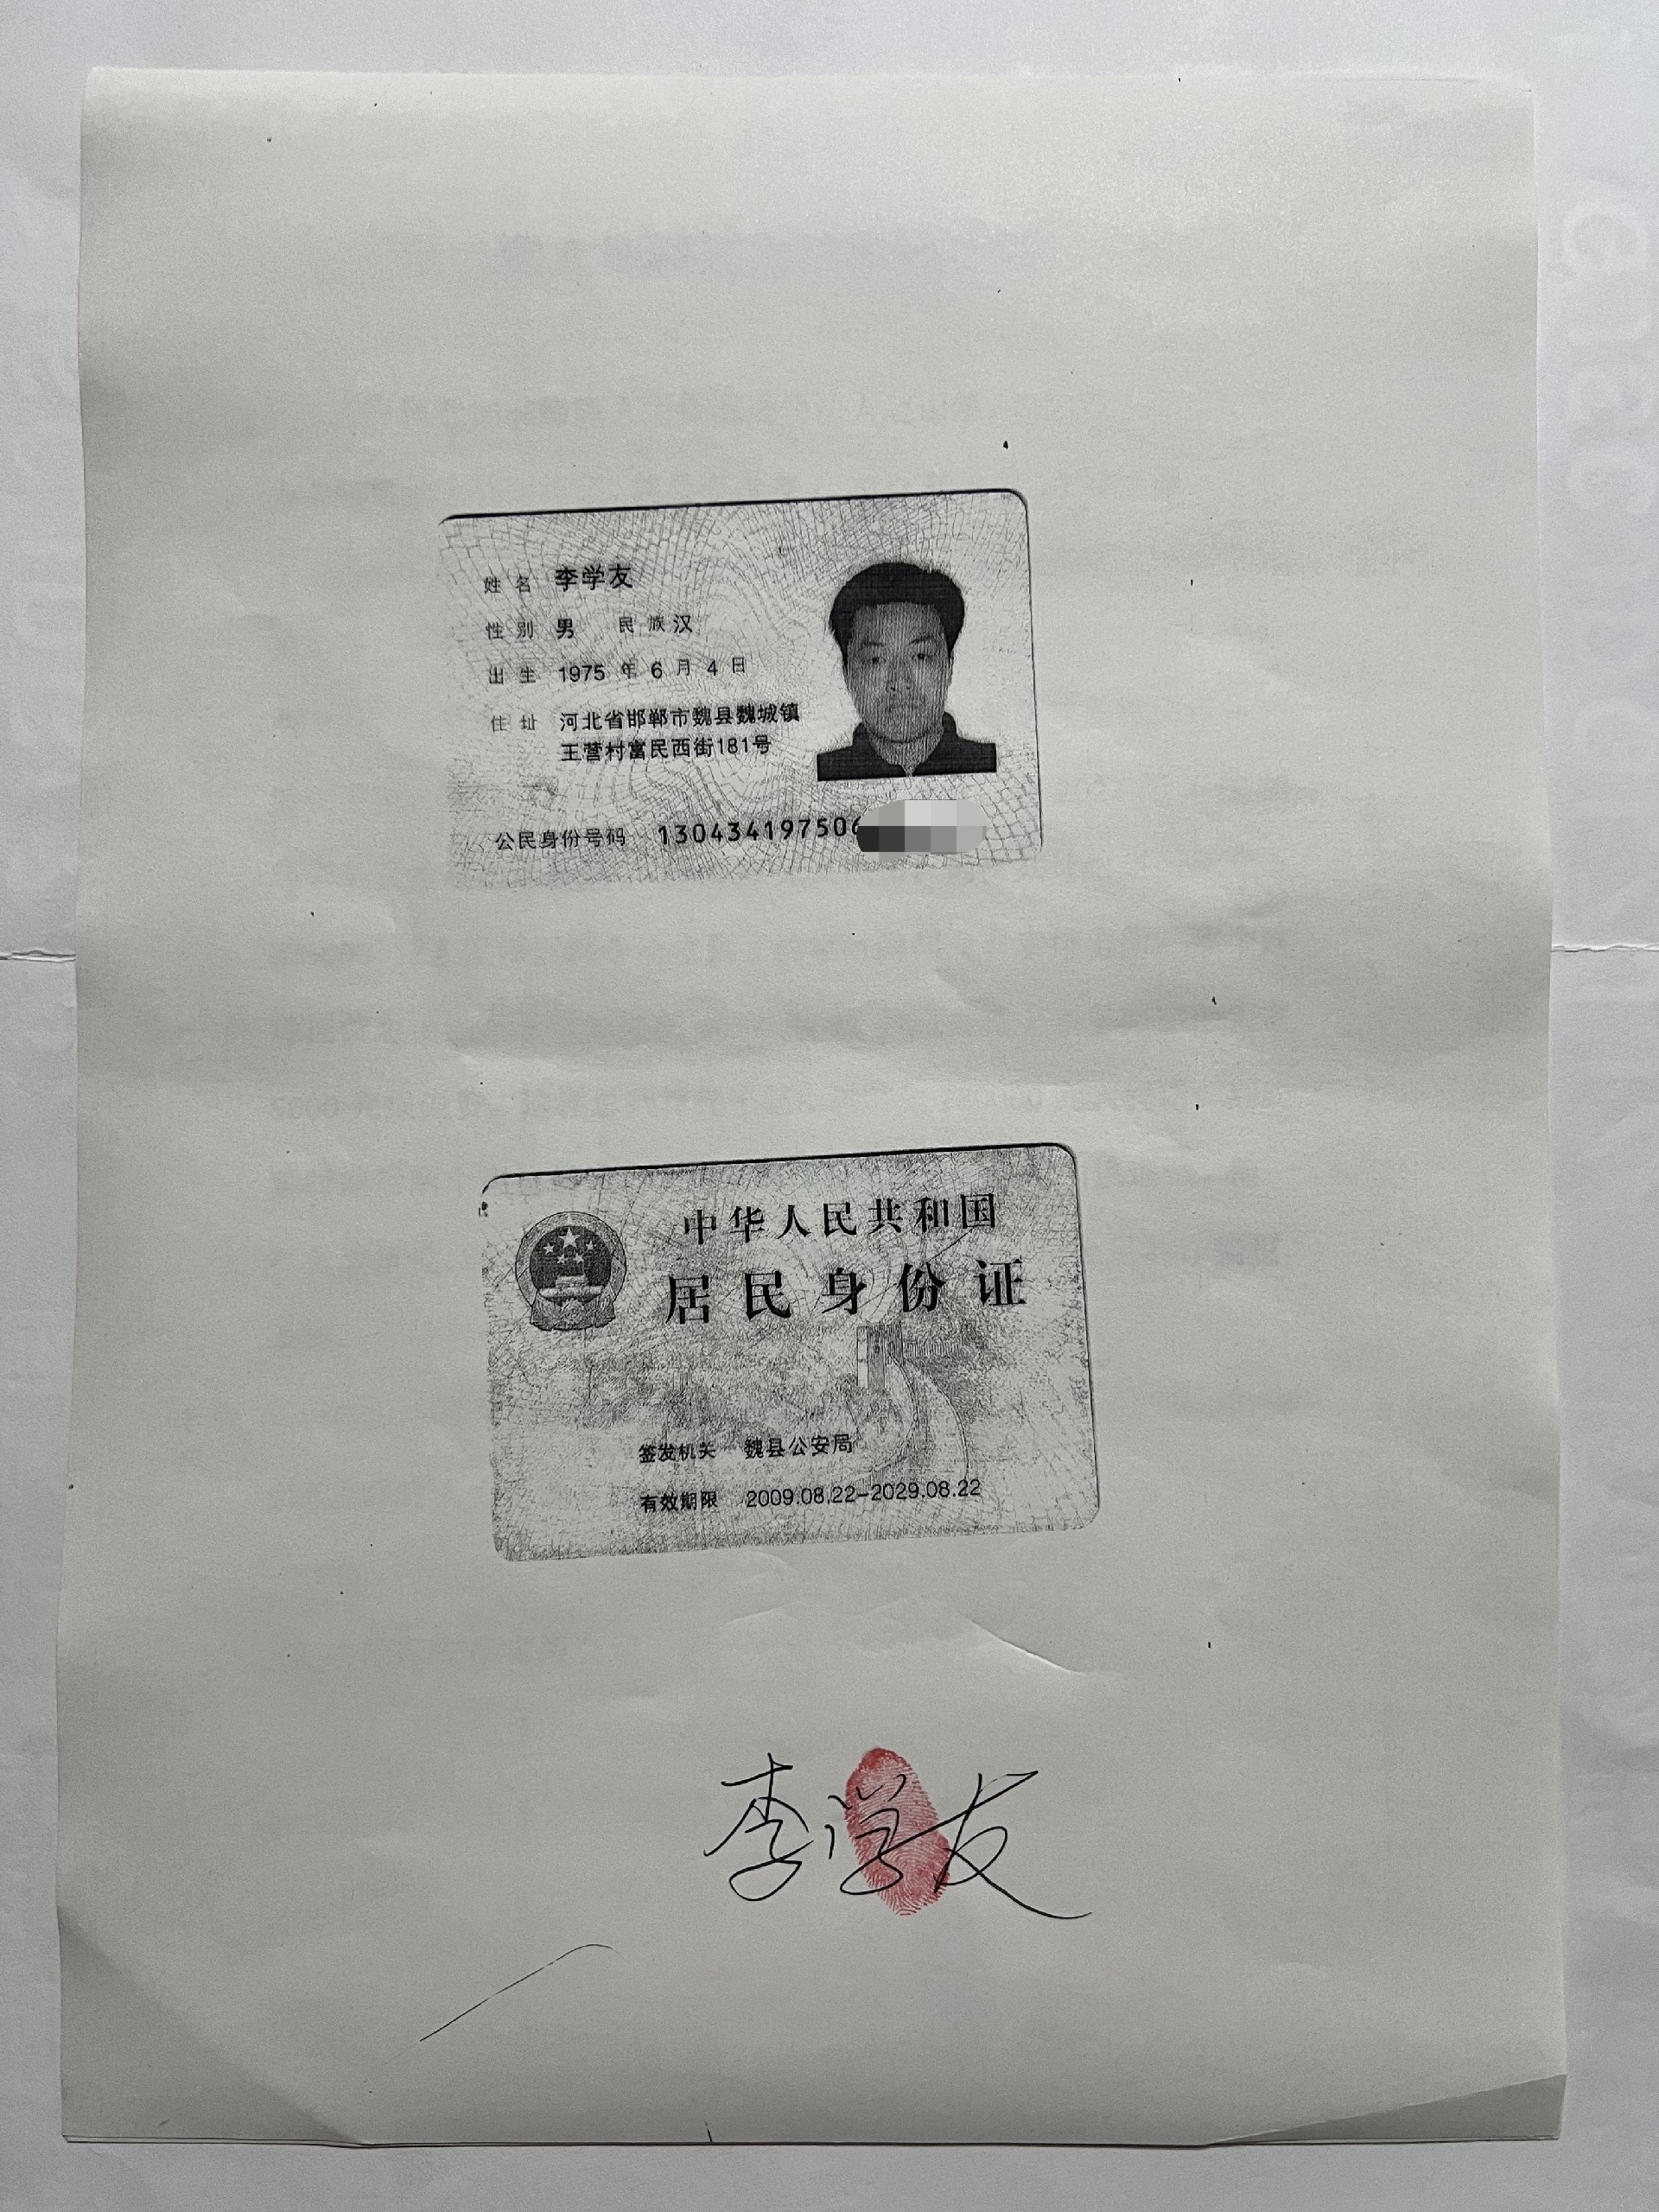 姓名 李学友
性别 男 民族 汉
出生 1975 年 6 月 4 日
住址 河北省邯郸市魏县魏城镇
王营村富民西街181号
公民身份号码 130434197506
中华人民共和国
居民身份证
签发机关 魏县公安局
有效期限 2009.08.22-2029.08.22
李学友